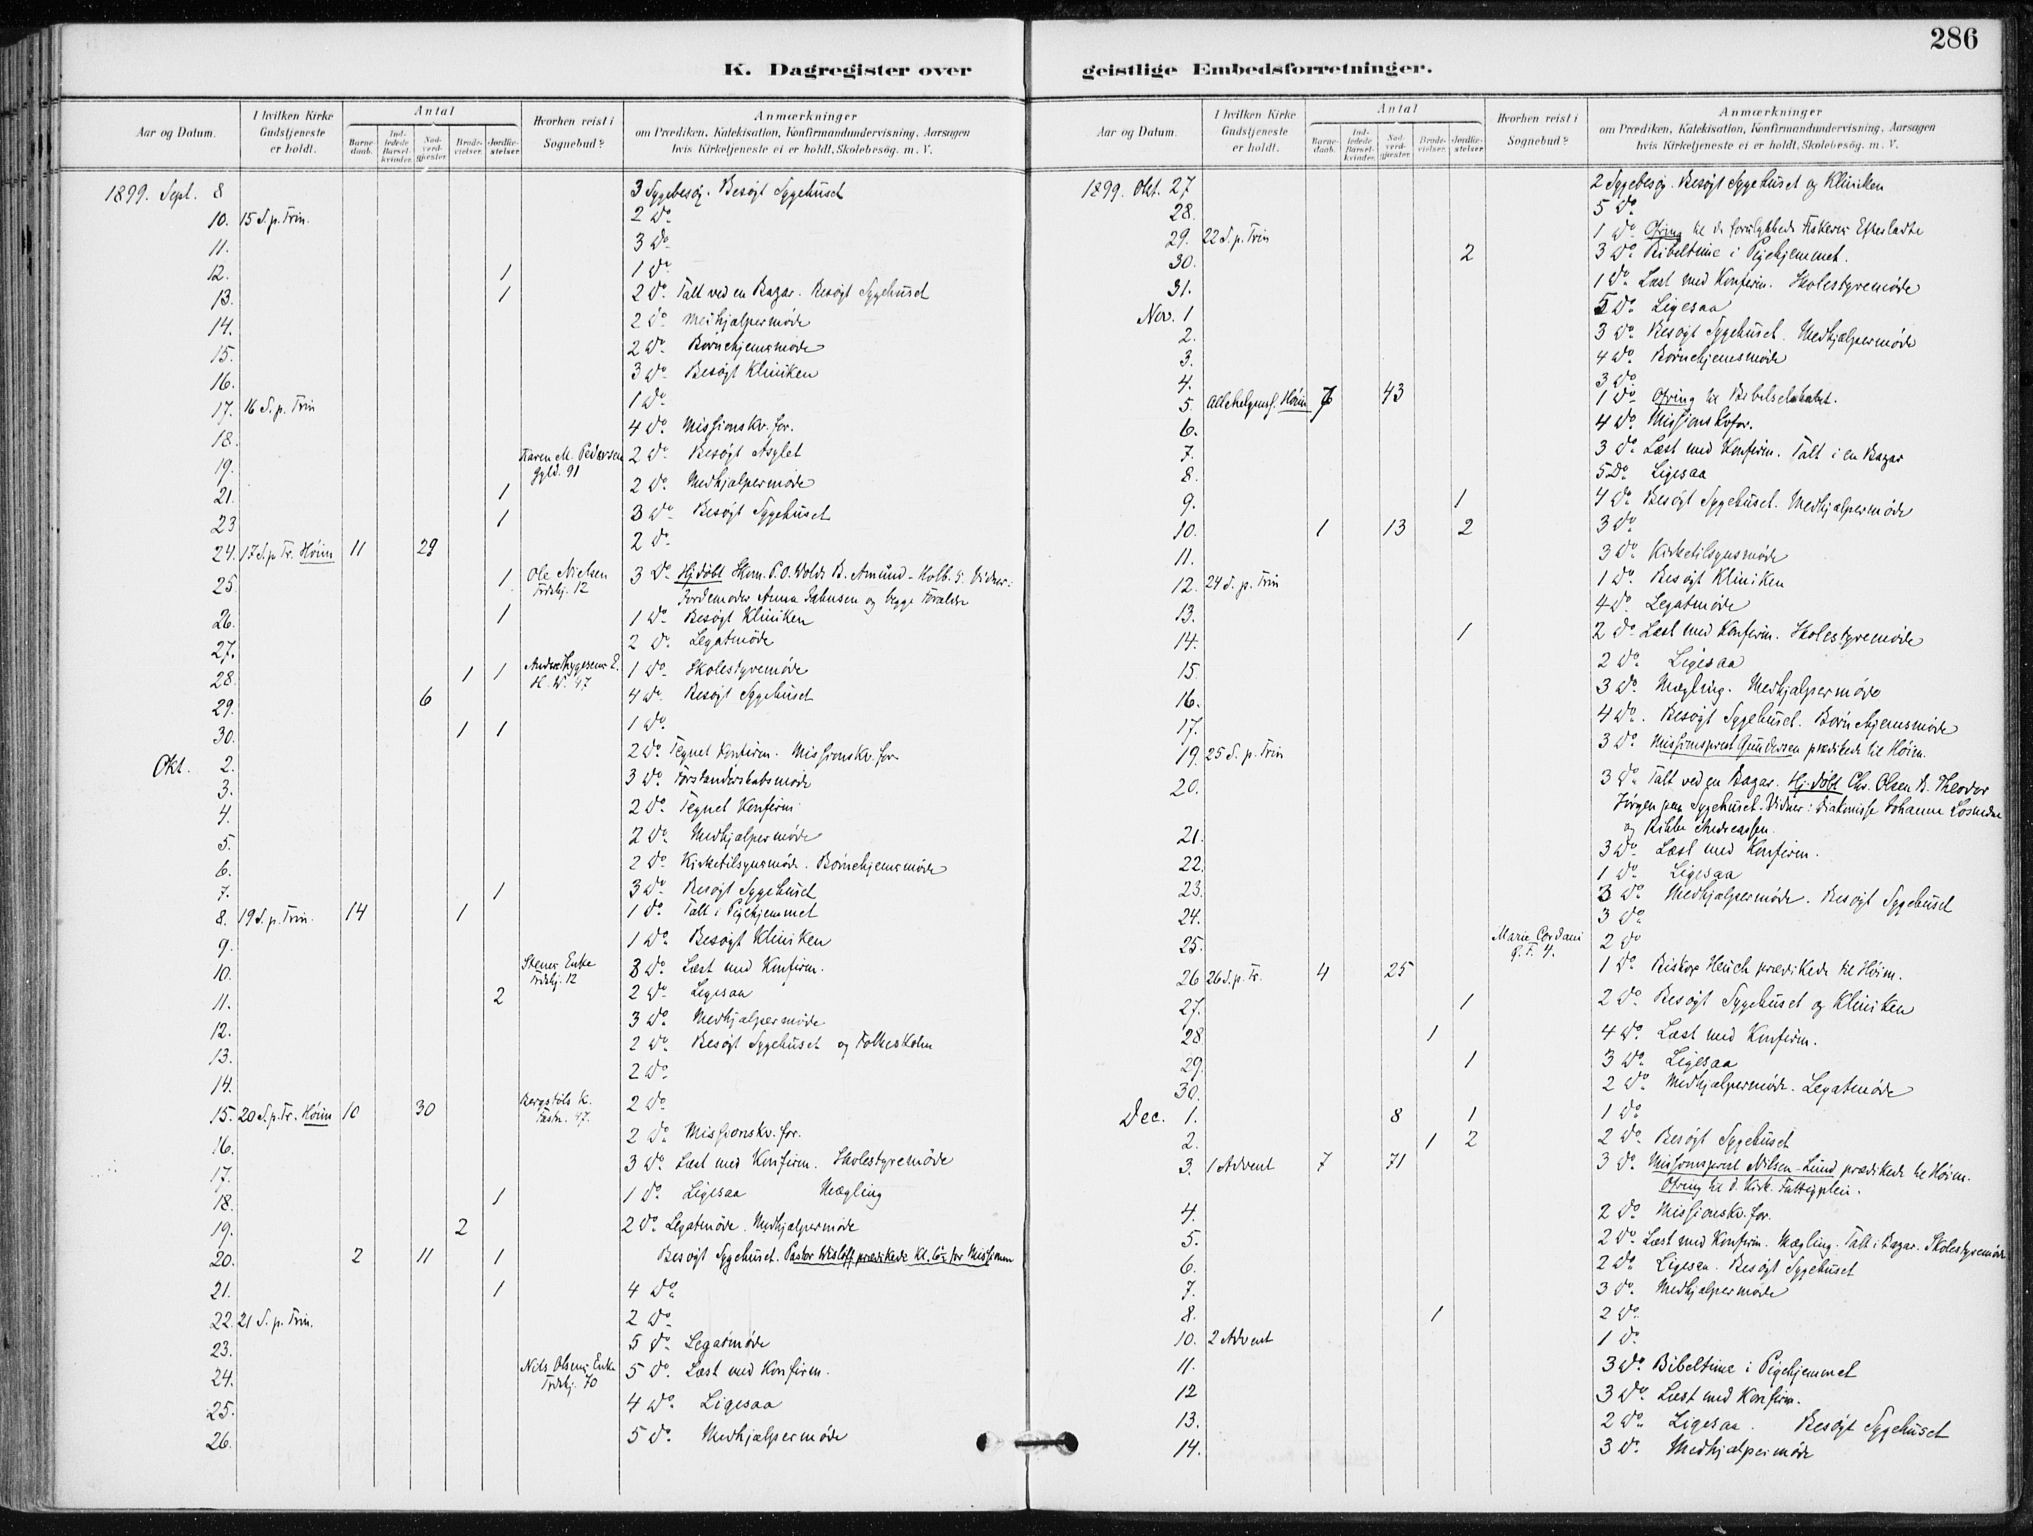 286
K. Dagregister over geistlige Embedsforretninger.
Aar og Datum. I hvilken Kirke Gudstjeneste er holdt. Antal Barnedaab. Indledede Barselkvinder. Nadverdgjester. Brudevielser. Jordfæstelser. Hvorhen reist i Sognebud? Anmærkninger om Prædiken, Katekisation, Konfirmandundervisning, Aarsagen hvis Kirketjeneste ei er holdt, Skolebesøg. m. V.
1899. Sept. 8 3 Sygebesøg. Besøgt Sygehuset
10. 15 S. p. Trin. 2 Do
11. 3 Do
12. 1 1 Do
13. 1 2 Do Talt ved en Bazar. Besøgt Sygehuset
14. 2 Do Medhjælpermøde
15. 2 Do Børnehjemsmøde
16. 3 Do Besøgt Kliniken
17. 16 S. p. Trin 1 Do
18. 4 Do Missionskv. for.
19. Karen M. Pedersen Gyld. 91 2 Do Besøgt Asylet
21. 1 2 Do Medhjælpermøde
23 1 3 Do Besøgt Sygehuset
24. 17 S. p. Tr. Høim 11 29 2 Do
25. 1 Ole Nielsen Trdskj. 12 3 Do Hj.døbt Skom. P. O. Wolds B. Amund - Kolb. 5. Vidner:
Jordemoder Anna Jahnsen og begge Forældre
26. 1 1 Do Besøgt Kliniken
27. 2 Do Legatmøde
28. 1 1 Anders Lygesens E. H. W. 47 1 Do Skolestyremøde
29. 6 4 Do Besøgt Sygehuset
30. 1 1 1 Do
Okt. 2. 2 Do Tegnet Konfirm. Missionskv. for
3. 3 Do Forstanderskabsmøde
4. 2 Do Tegnet Konfirm
5. 2 Do Medhjælpermøde
6. 2 Do Kirketilsynsmøde. Børnehjemsmøde
7. 1 3 Do Besøgt Sygehuset
8. 19 S. p. Trin. 14 1 1 Do Talt i Pigehjemmet
9. 1 Do Besøgt Kliniken
10. Steens Enke Trdskj. 12 3 Do Læst med Konfirm.
11. 2 2 Do Ligesaa
12. 3 Do Medhjælpermøde
13. 2 Do Besøgt Sygehuset og Folkeskolen
14. 2 Do
15. 20 S. p. Tr. Høim 10 30 Bergstøls K. Tastn. 47. 2 Do
16. 2 Do Missionskv. for.
17. 3 Do Læst med Konfirm. Skolestyremøde
18. 1 1 Do Ligesaa Mægling
19. 2 2 Do Legatmøde. Medhjælpermøde
20. 2 11 1 Besøgt Sygehuset. Pastor Wisløff prædikede Kl. 6 for Missionen
21. 1 4 Do
22. 21 S. p. Trin. 2 Do
23. 5 Do Legatmøde
24. Nils Olsens Enke Trdskj. 70 5 Do Læst med Konfirm.
25. 4 Do Ligesaa
26. 5 Do Medhjælpermøde
Aar og Datum. I hvilken Kirke Gudstjeneste er holdt. Antal Barnedaab. Indledede Barselkvinder. Nadverdgjester. Brudevielser. Jordfæstelser. Hvorhen reist i Sognebud? Anmærkninger om Prædiken, Katekisation, Konfirmandundervisning, Aarsagen hvis Kirketjeneste ei er holdt, Skolebesøg. m. V.
1899. Okt. 27 2 Sygebesøg. Besøgt Sygehuset og Kliniken
28. 5 Do
29. 22 S. p. Trin 1 Do Ofring til de forulykkede Fiskeres Efterladte
30. 2 3 Do Bibeltime i Pigehjemmet.
31. 1 Do Læst med Konfirm. Skolestyremøde
Nov. 1 5 Do Ligesaa
2. 3 Do Besøgt Sygehuset. Medhjælpermøde
3. 4 Do Børnehjemsmøde
4. 3 Do
5. Allehelgensf. Høim 7 43 1 Do Ofring til Bibelselskabet.
6. 4 Do Missionskvfor.
7. 3 Do Læst med Konfirm. Talt i en Bazar
8. 5 Do Ligesaa
9. 1 4 Do Besøgt Sygehuset. Medhjælpermøde
10. 1 13 2 3 Do
11. 3 Do Kirketilsynsmøde
12. 24 S. p. Trin 1 Do Besøgt Kliniken
13. 4 Do Legatmøde
14. 1 2 Do Læst med Konfirm. Skolestyremøde
15. 2 Do Ligesaa
16. 3 Do Mægling. Medhjælpermøde
17. 4 Do. Besøgt Sygehuset. Børnehjemsmøde
19. 25 S. p. Trin 3 Do Missionsprest Gundersen prædikede til Høim.
20. 3 Do Talt ved en Bazar. Hj.døbt Chr. Olsen B. Theodor
Jørgen paa Sygehuset. Vidner: Diakonisse Johanne Losnedne
og Rikke Andreassen.
21. 3 Do Læst med Konfirm.
22. 1 Do Ligesaa
23. 3 Do Medhjælpermøde. Besøgt Sygehuset
24. 3 Do
25. Marie Cordani G. F. 4. 2 Do
26 26 S. p. Tr. 4 25 1 Do Biskop Heuch prædikede til Høim.
27. 1 2 Do Besøgt Sygehuset og Kliniken
28. 1 4 Do Læst med Konfirm.
29. 1 3 Do Ligesaa
30. 2 Do Medhjælpermøde. Legatmøde
Dec. 1. 8 1 1 Do
2. 1 2 2 Do Besøgt Sygehuset
3. 1 Advent 7 71 3 Do Missionsprest Nilsen-Lund prædikede til Høim.
Ofring til d. Kirk. Fattigplein.
4. 2 Do Missionskv. for.
5. 2 Do Læst med Konfirm. Mægling. Talt i Bazar. Skolestyremøde
6. 2 Do Ligesaa. Besøgt Sygehuset
7. 3 Do Medhjælpermøde
8. 1 2 Do
10. 2 Advent 1 Do
11. 3 Do Bibeltime i Pigehjemmet
12 3 Do Læst med Konfirm.
13. 2 Do Ligesaa. Besøgt Sygehuset
14. 3 Do Medhjælpermøde